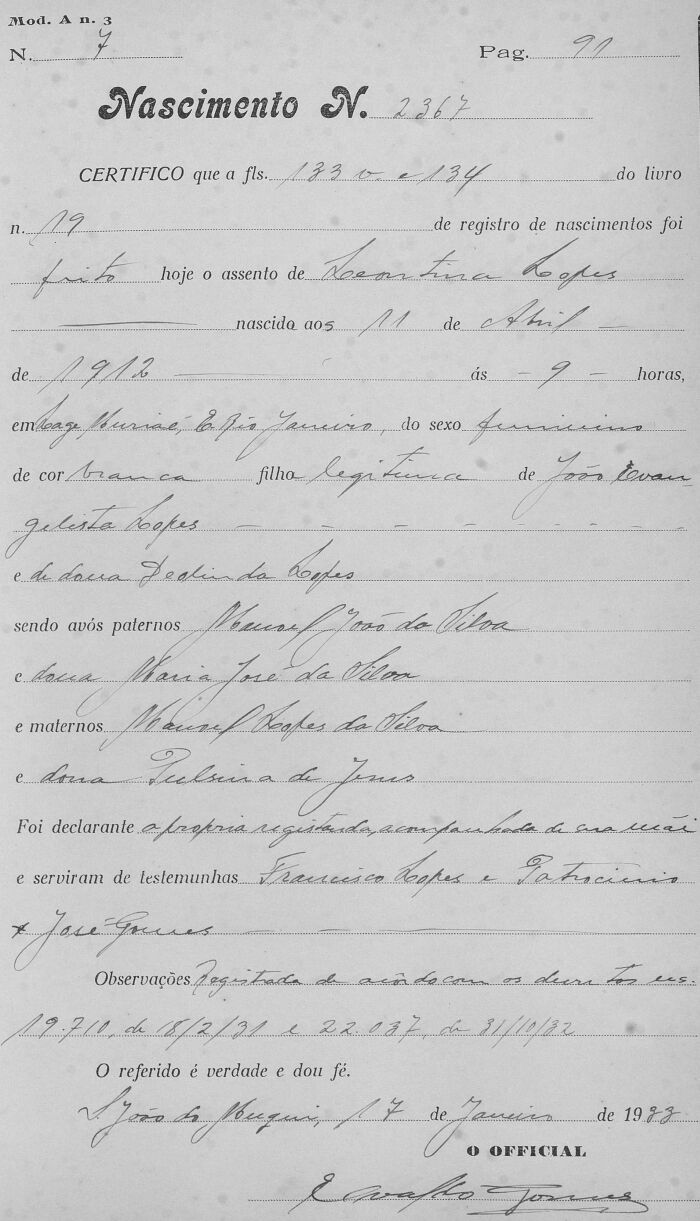 Mod. A n. 3
N. 7 Pag. 91
Nascimento N. 2367
CERTIFICO que a fls. 133 v. e 134 do livro
n. 19 de registro de nascimentos foi
feito hoje o assento de Leontina Lopes
nascido aos 11 de Abril
de 1912 ás - 9 - horas,
em Lage Muriaé, E. Rio Janeiro, do sexo feminino
de cor branca filha legitima de João Evan-
gelista Lopes
e de dona Deolinda Lopes
sendo avós paternos Manoel João da Silva
e dona Maria José da Silva
e maternos Manoel Lopes da Silva
e dona de Jesus
Foi declarante a propria registrada, acompanhada de sua mãi
e serviram de testemunhas Francisco Lopes e Patrocinio
José Gomes
Observações Registrada de acôrdo com os decretos
19.710, de 18/2/31 e 22.037, de 31/10/32
O referido é verdade e dou fé.
S. João do Muqui, 17 de Janeiro de 1933
O OFFICIAL
Gomes